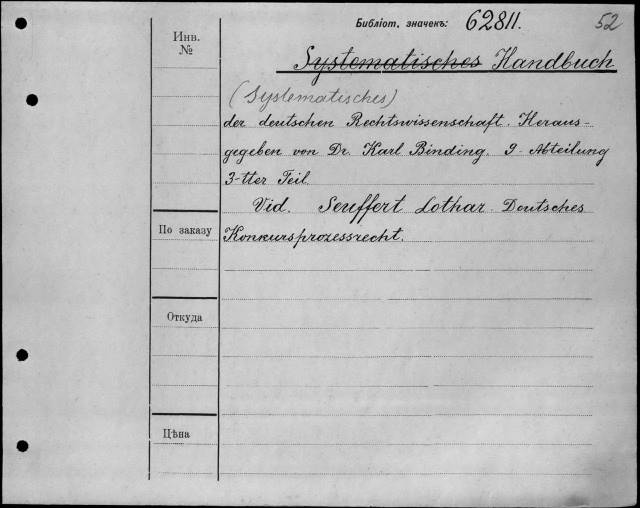 Библіот. значекъ: 62811.
52
Инв. №
Systematisches Handbuch
(Systematisches)
der deutschen Rechtswissenschaft. Heraus-
gegeben von Dr. Karl Binding. 9. Abteilung
3-tter Teil.
Vid. Seuffert Lothar. Deutsches
По заказу
Konkursprozessrecht.
Откуда
Цѣна